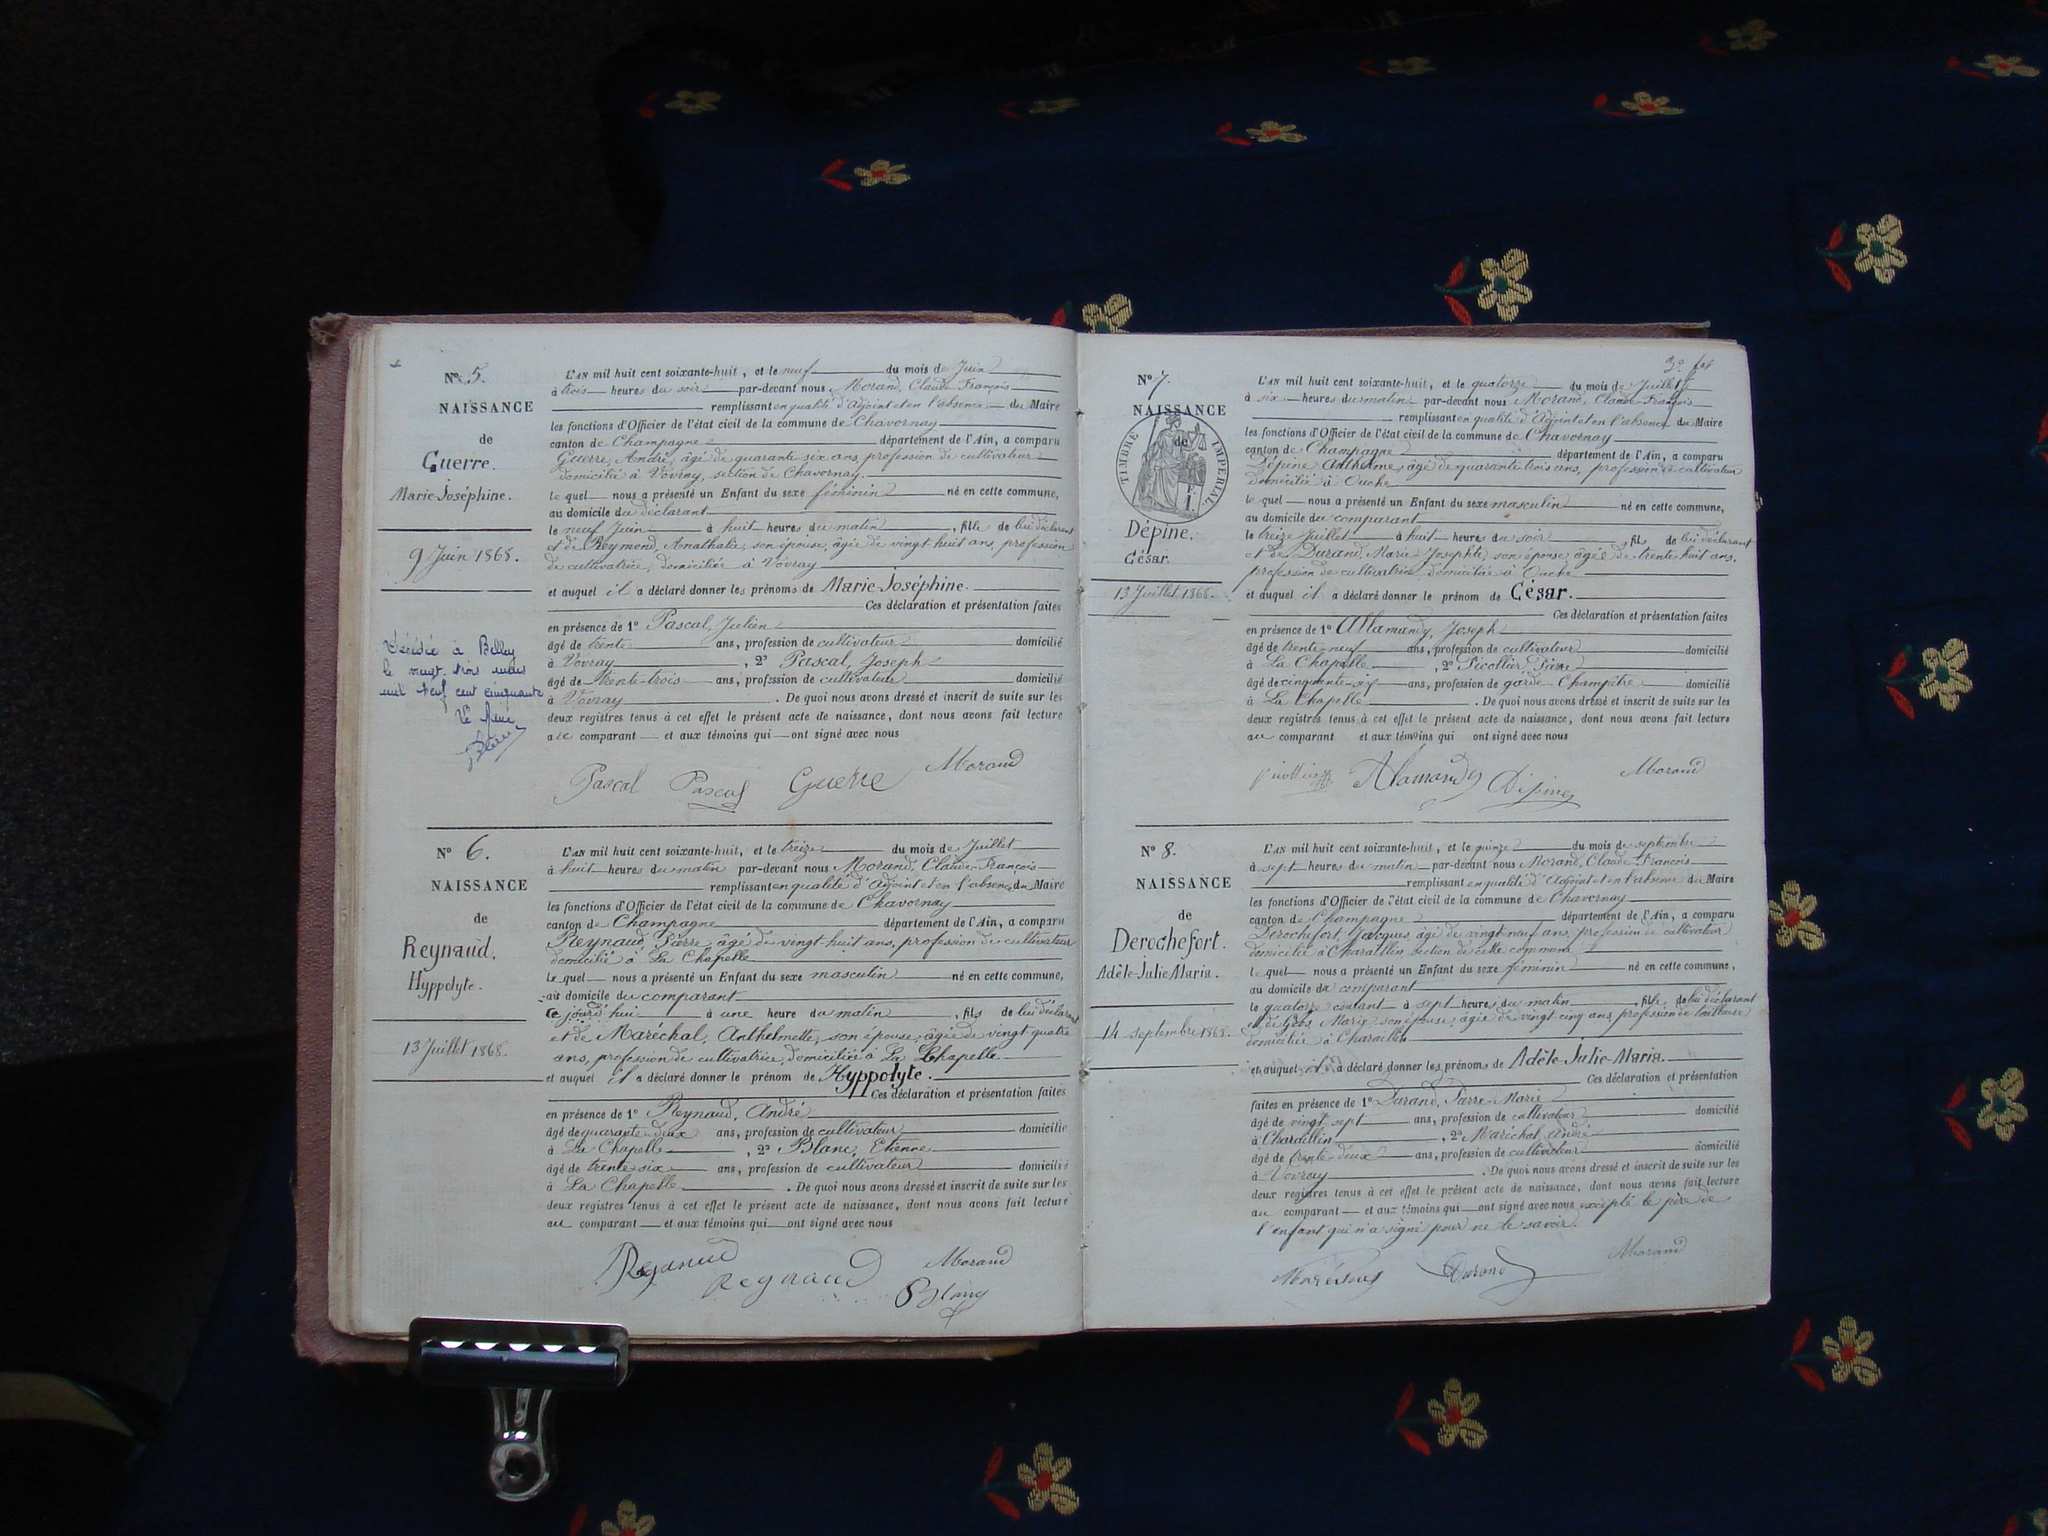 Nº 5.
NAISSANCE
de
Guerre.
Marie-Joséphine.
9 Juin 1868.
Décédée à Belley
le vingt-trois mars
mil neuf cent cinquante
L'AN mil huit cent soixante-huit, et le neuf du mois de Juin
à trois heures du soir par-devant nous Morand, Claude-François
remplissant en qualité d'Adjoint et en l'absence du Maire
les fonctions d'Officier de l'état civil de la commune de Chavornay
canton de Champagne département de l'Ain, a comparu
Guerre, André, âgé de quarante-six ans, profession de cultivateur
domicilié à Vovray, section de Chavornay
lequel nous a présenté un Enfant du sexe féminin né en cette commune,
au domicile du déclarant
le neuf Juin à huit heures du matin, fille de lui déclarant
et de Reymond, Anathalie, son épouse, âgée de vingt huit ans, profession
de cultivatrice, domiciliée à Vovray
et auquel il a déclaré donner les prénoms de Marie-Joséphine.
Ces déclaration et présentation faites
en présence de 1º Pascal, Julien
âgé de trente ans, profession de cultivateur domicilié
à Vovray, 2º Pascal, Joseph
âgé de trente-trois ans, profession de cultivateur domicilié
à Vovray. De quoi nous avons dressé et inscrit de suite sur les
deux registres tenus à cet effet le présent acte de naissance, dont nous avons fait lecture
au comparant et aux témoins qui ont signé avec nous
Pascal Pascal Guerre Morand
Nº 6.
NAISSANCE
de
Reynaud.
Hyppolyte.
13 Juillet 1868.
L'AN mil huit cent soixante-huit, et le treize du mois de Juillet
à huit heures du matin par-devant nous Morand, Claude-François
remplissant en qualité d'Adjoint et en l'absence du Maire
les fonctions d'Officier de l'état civil de la commune de Chavornay
canton de Champagne département de l'Ain, a comparu
Reynaud, Pierre, âgé de vingt-huit ans, profession de cultivateur
domicilié à La Chapelle
lequel nous a présenté un Enfant du sexe masculin né en cette commune,
au domicile du comparant
Ce jourd'hui à une heure du matin, fils de lui déclarant
et de Maréchal, Anthelmette, son épouse, âgée de vingt-quatre
ans, profession de cultivatrice, domiciliée à La Chapelle
et auquel il a déclaré donner le prénom de Hyppolyte.
Ces déclaration et présentation faites
en présence de 1º Reynaud, André
âgé de quarante-deux ans, profession de cultivateur domicilié
à La Chapelle, 2º Blanc, Etienne
âgé de trente six ans, profession de cultivateur domicilié
à La Chapelle. De quoi nous avons dressé et inscrit de suite sur les
deux registres tenus à cet effet le présent acte de naissance, dont nous avons fait lecture
au comparant et aux témoins qui ont signé avec nous
Reynaud Reynaud Morand
Blanc
3º fet
Nº 7.
NAISSANCE
de
TIMBRE IMPERIAL
Dépine.
César.
13 Juillet 1868.
L'AN mil huit cent soixante-huit, et le quatorze du mois de Juillet
à six heures du matin par-devant nous Morand, Claude-François
remplissant en qualité d'Adjoint et en l'absence du Maire
les fonctions d'Officier de l'état civil de la commune de Chavornay
canton de Champagne département de l'Ain, a comparu
Dépine Anthelme, âgé de quarante-trois ans, profession de cultivateur
domicilié à Ouche
lequel nous a présenté un Enfant du sexe masculin né en cette commune,
au domicile du comparant
le treize Juillet à huit heures du soir, fils de lui déclarant
et de Durand, Marie Josephte, son épouse, âgée de trente huit ans,
profession de cultivatrice domiciliée à Ouche
et auquel il a déclaré donner le prénom de César.
Ces déclaration et présentation faites
en présence de 1º Allamandy, Joseph
âgé de trente-neuf ans, profession de cultivateur domicilié
à La Chapelle, 2º Picollier, Pierre
âgé de cinquante-six ans, profession de garde-Champêtre domicilié
à La Chapelle. De quoi nous avons dressé et inscrit de suite sur les
deux registres tenus à cet effet le présent acte de naissance, dont nous avons fait lecture
au comparant et aux témoins qui ont signé avec nous
Alamandy Dépine Morand
Nº 8.
NAISSANCE
de
Derochefort.
Adèle-Julie-Maria.
14 septembre 1868.
L'AN mil huit cent soixante-huit, et le quinze du mois de septembre
à sept heures du matin par-devant nous Morand, Claude-François
remplissant en qualité d'Adjoint et en l'absence du Maire
les fonctions d'Officier de l'état civil de la commune de Chavornay
canton de Champagne département de l'Ain, a comparu
Derochefort, Jacques, âgé de vingt-neuf ans, profession de cultivateur
domicilié à Charaillin section de cette commune
lequel nous a présenté un Enfant du sexe féminin né en cette commune,
au domicile du comparant
le quatorze courant à sept heures du matin, fille de lui déclarant
et de Gros, Marie, son épouse, âgée de vingt-cinq ans, profession de tailleuse
domiciliée à Charaillin
et auquel il a déclaré donner les prénoms de Adèle-Julie-Maria.
Ces déclaration et présentation
faites en présence de 1º Durand, Pierre-Marie
âgé de vingt sept ans, profession de cultivateur domicilié
à Charaillin, 2º Maréchal, André
âgé de trente-deux ans, profession de cultivateur domicilié
à Vovray. De quoi nous avons dressé et inscrit de suite sur les
deux registres tenus à cet effet le présent acte de naissance, dont nous avons fait lecture
au comparant et aux témoins qui ont signé avec nous excepté le père de
l'enfant qui n'a signé pour ne le savoir.
Maréchal Durand Morand